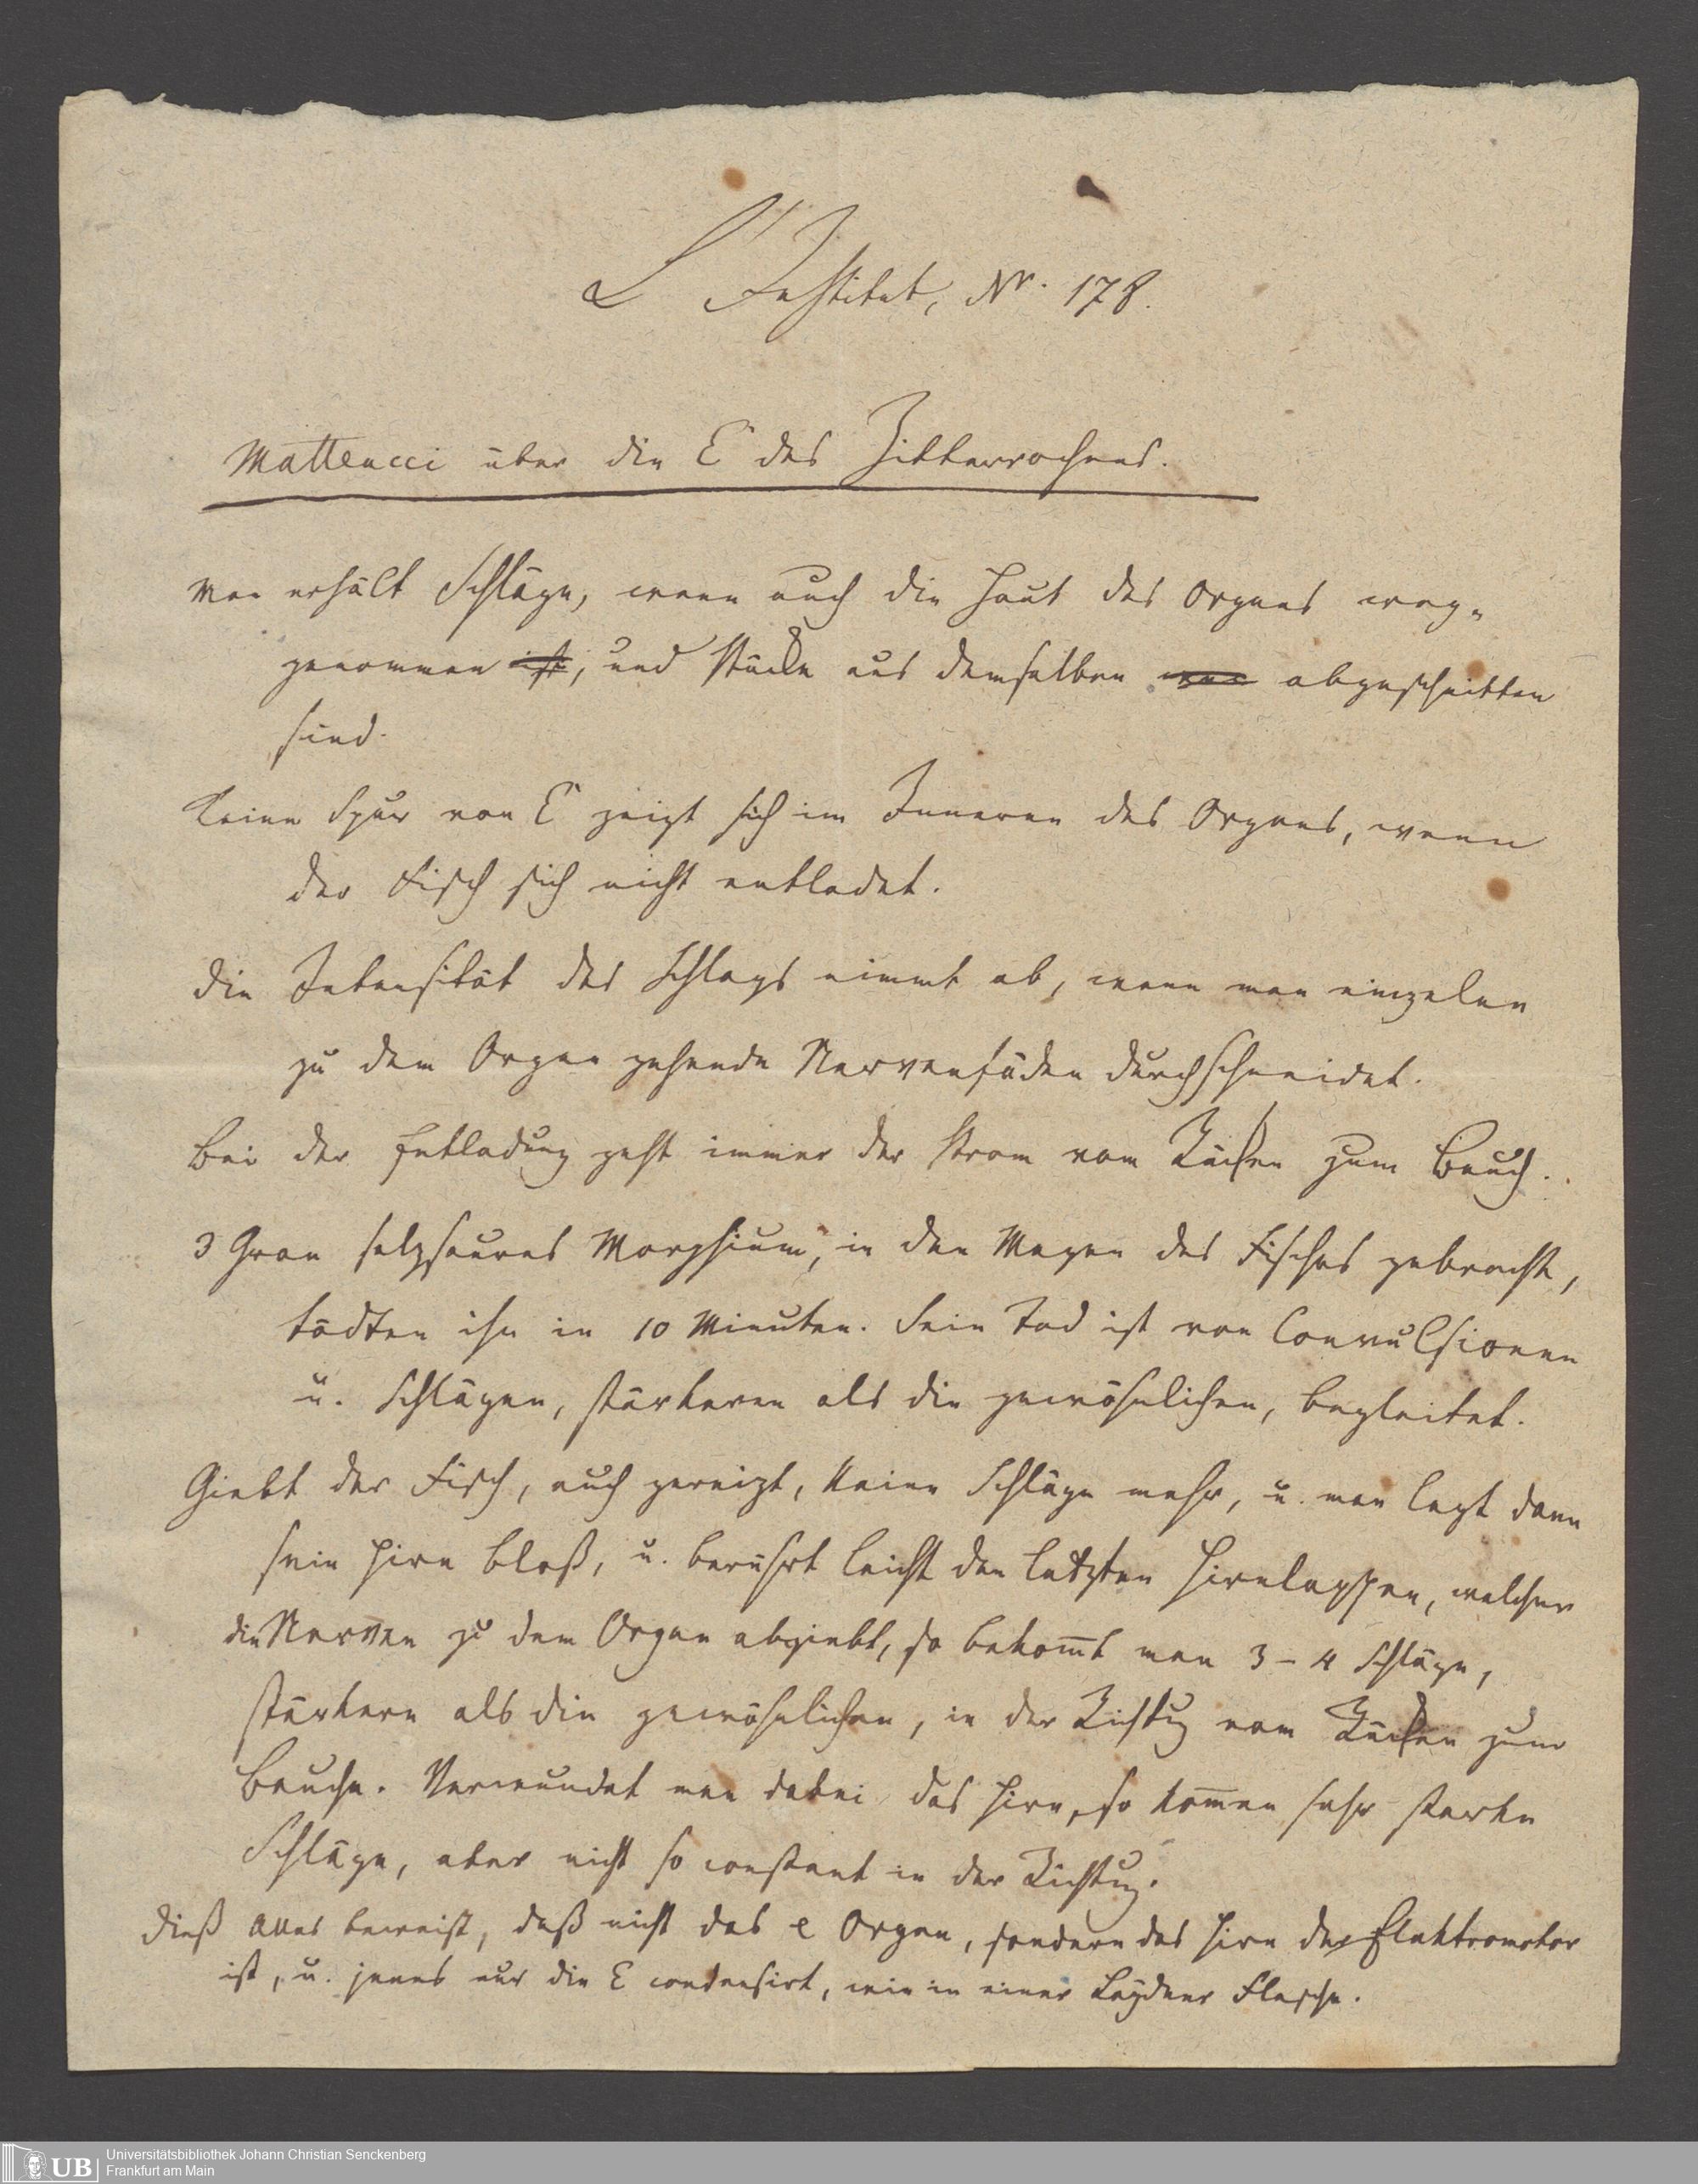 L'Institut, Nr. 178.
Matteucci über die E des Zitterrochens.
Man erhält Schläge, wenn auch die Haut des Organs weg-
genommen ist, und Stücke aus demselben abgeschnitten
sind.
Keine Spur von E zeigt sich im Inneren des Organs, wenn
der Fisch sich nicht entladet.
Die Intensität des Schlags nimmt ab, wenn man einzelne
zu dem Organ gehende Nervenfäden durchschneidet.
Bei der Entladung geht immer der Strom vom Rücken zum Bauch.
3 Gran salzsaures Morphium, in den Magen des Fisches gebracht,
tödten ihn in 10 Minuten. Sein Tod ist von Convulsionen
u. Schlägen, stärkeren als die gewöhnlichen, begleitet.
Giebt der Fisch, auch gereizt, keine Schläge mehr, u. man legt dann
sein Hirn bloß, u. berührt leicht den letzten Hirnlappen, welcher
die Nerven zu dem Organ abgiebt, so bekom̅t man 3 - 4 Schläge,
stärkere als die gewöhnlichen, in der Richtug vom Rücken zum
Bauche. Verwundet man dabei das Hirn, so kom̅en sehr starke
Schläge, aber nicht so constant in der Richtug.
Dieß Alles beweist, daß nicht das e Organ, sondern das Hirn der Elektromotor
ist, u. jenes nur die E condensirt, wie in einer Leydner Flasche.
UB
Universitätsbibliothek Johann Christian Senckenberg
Frankfurt am Main